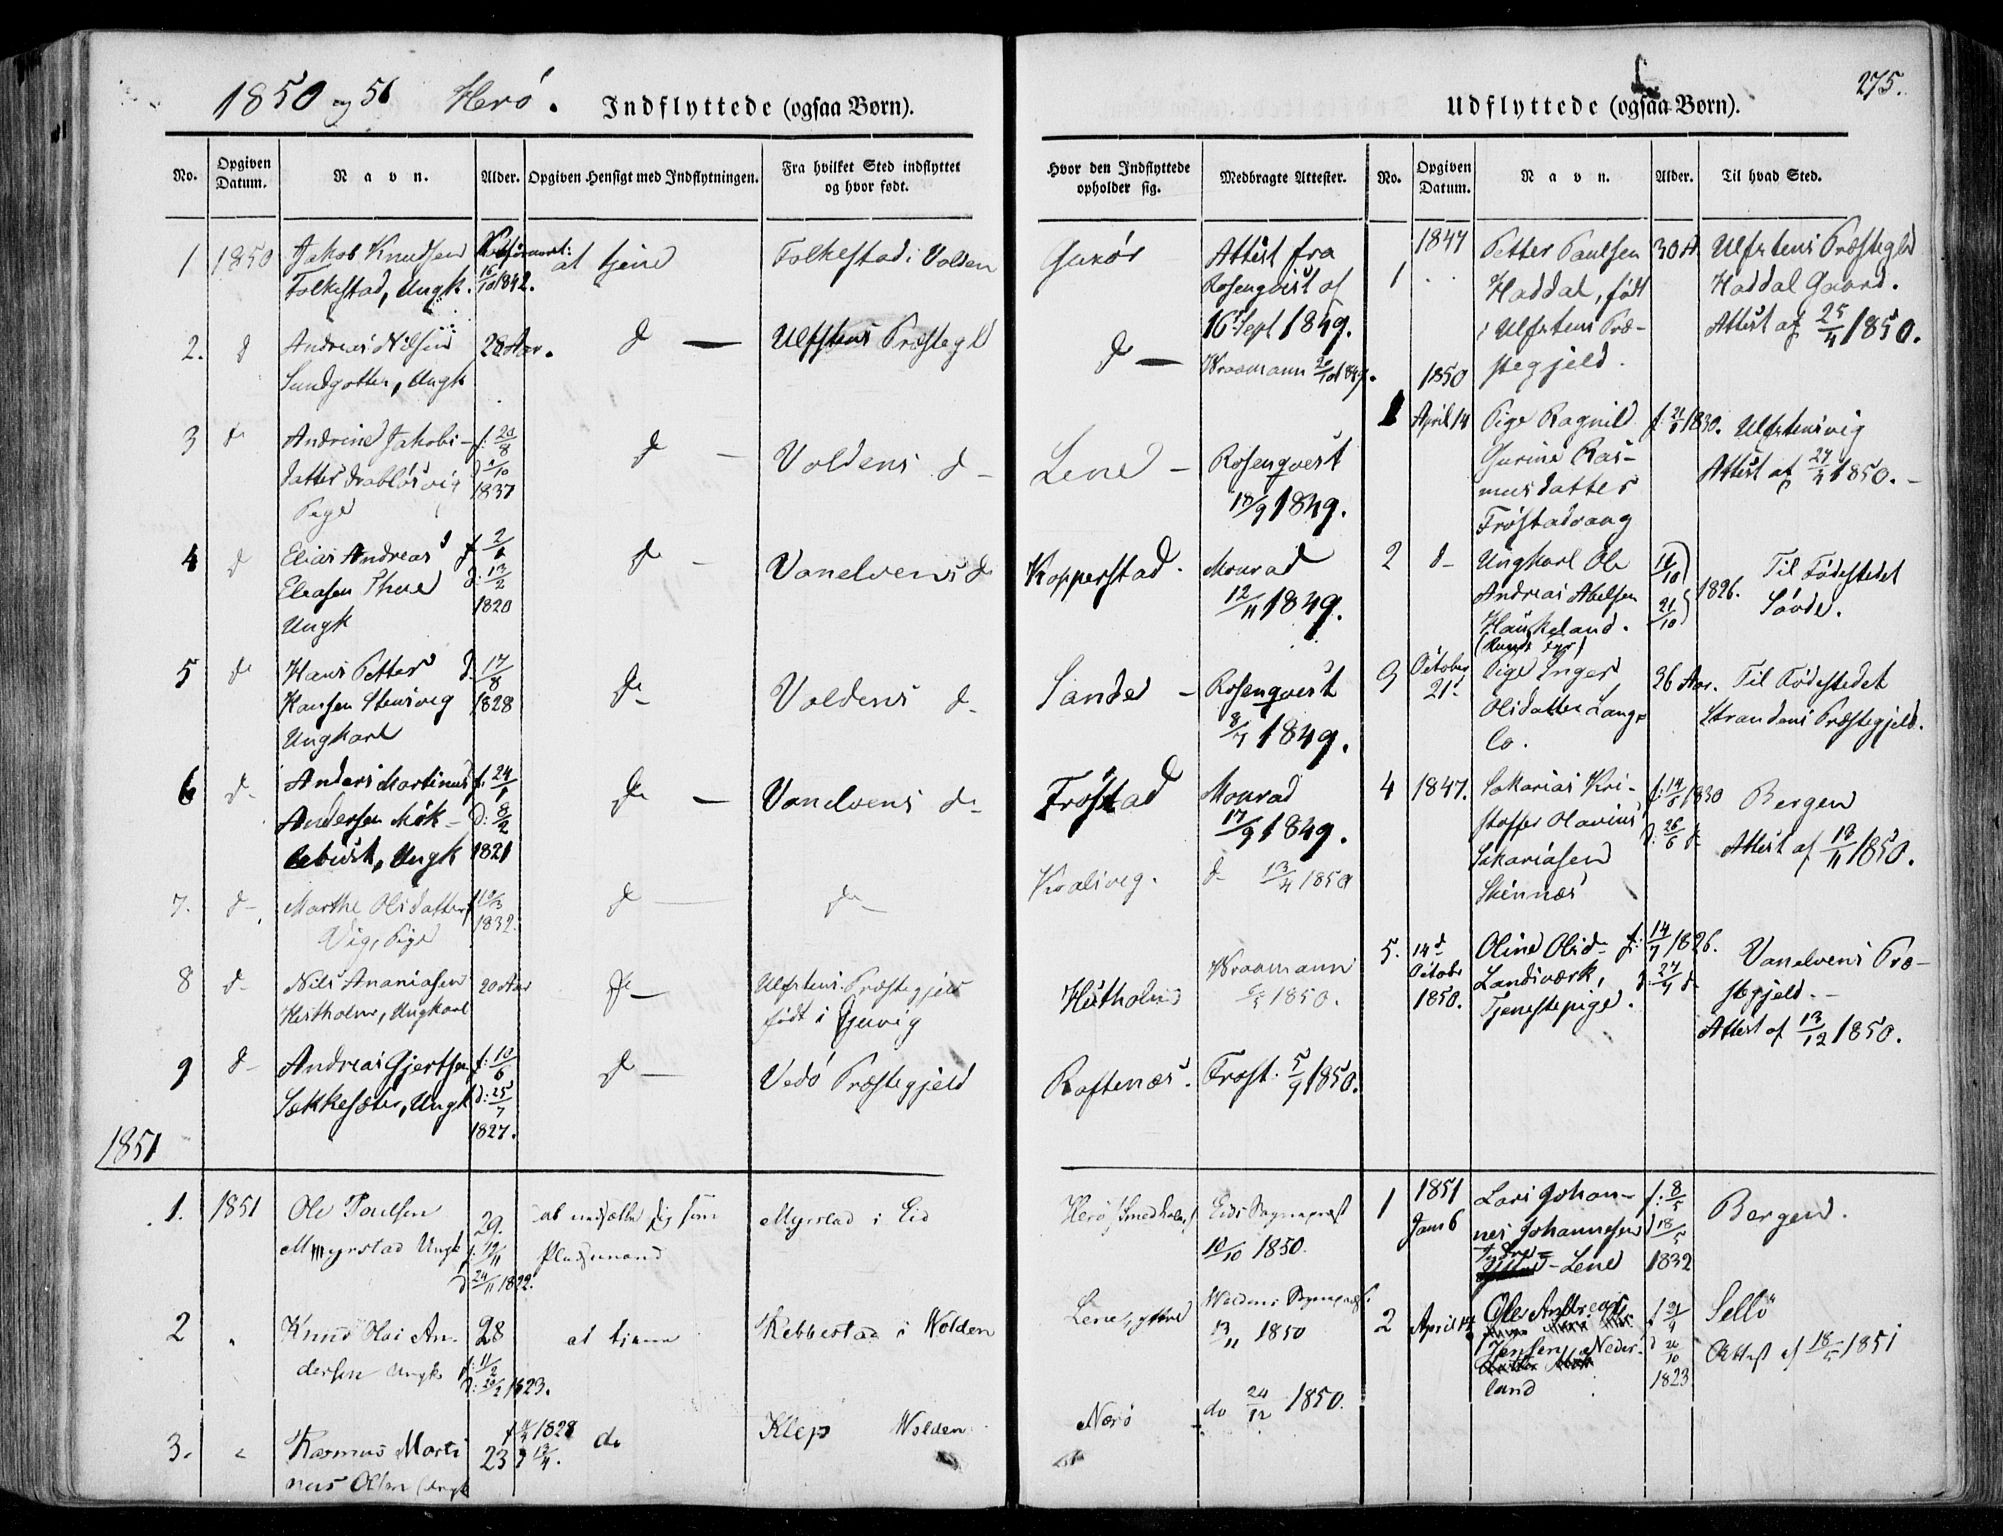 1850 og 51 Herö.
Indflyttede (ogsaa Børn).
Udflyttede (ogsaa Børn).
275.
No.
Opgiven Datum.
Navn.
Alder.
Opgiven Hensigt med Indflytningen.
Fra hvilket Sted indflyttet og hvor født.
Hvor den Indflyttede opholder sig.
Medbragte Attester.
No.
Opgiven Datum.
Navn.
Alder.
Til hvad Sted.
1 1850 Jakob Knudsen at tjene Folkestad i Volden Gurør Attest fra
Folkestad, Ungk. 1842. Rosenqvist af
16 Sept 1849.
2. d Andreas Nilsen 28 Aar. d — Ulfstens Præstegld d —
Ungk
3 d Andrine Jakobi- f: 20/8 d — Voldens d — Lene — Rosenqvest
datter Drabløsvig 1837 18/9 1849.
Pige
4 d Elias Andreas f 2/1 d — Vanelvens d Kopperstad. Monrad
Eliasen Thue d: 13/2 12/11 1849.
Ungk 1820
5 d Hans Petter d. 17/8 d — Voldens d — Sande — Rosenqvest
Hansen Stensvig 1828 8/7 1849.
Ungkarl
6 d — Anders Martinus f: 24/1 d — Vanelvens d — Frøstad Monrad
Andersen Mök- d: 8/2 17/9 1849.
lebust, Ungk 1821
7. d — Marthe Olsdatter d — d — Kvalsvig. d 13/4 1850
Vig, Pige 1832.
8 d — Nils Ananiasen 20 Aar d — Ulfstens Præstegjeld
Hestholm, Ungkarl født i Hestholm 1850.
9 d — Andreas Gjertsen f: 10/6 d — Vedö Præstegjeld Raftenæs. Frost. 5/9 1850.
Sækkesæter, Ungk d: 25/7
1827.
1851
1. 1851 Ole Poulsen 29. at nedsætte sig som Myrstad i Eid Herö Eids Sognepræst
Myrstad Ungk Pladsmand 10/10 1850.
24/11 1822.
2 " Knud Olai An- 28 at tjene i Wolden Lene, ytre Woldens
dersen Ungk f: 11/2 13/11 1850
1823.
3. " Rasmus Marti 23 1828 do Klep Wolden Nerö do 24/12 1850.
nus
1 1847 Petter Paulsen 30 A. Ulfstens Præstegld
Haddal, født Haddal Gaard.
i Ulfstens Præ- Attest af 25/4 1850.
stegjeld.
1850
1 April 14 Pige Ragnil f: 21/1 1830. Ulfstensvig
Gurine Ras- Attest af 27/4 1850. —
musdatter
Frøstadvaag
2 d — Ungkarl Ole 1826. Til Födestedet
Andreas Abelsen 21/10 Søvde.
Haukeland.
3 October 21 Pige Inger 36 Aar. Til Födestedet
Olsdatter Lange- Strandens Præstegjeld.
lo.
4 1847. Sakarias Kri- f: 14/6 1830 Bergen
stoffer Olavius d: 26/6 d — Attest af 13/11 1850.
Sakariasen
Skinnæs
5. 14d Octobr 1850. Oline Olsd — f: 14/7 1826. Vanelvens Præ-
Landsværk, d: 24/7 d stegjeld. —
Tjenestepige. Attest af 13/12 1850.
1 1851 Lars Johan- f: 8/5 Bergen.
Janr 6 nes Johannesen d 18/5
Indre - Lene 1832
2 April 14 Ole Andreas f 21/4 Sellö
Jensen Neder- d 20/10 Attest af 18/5 1851
land 1823